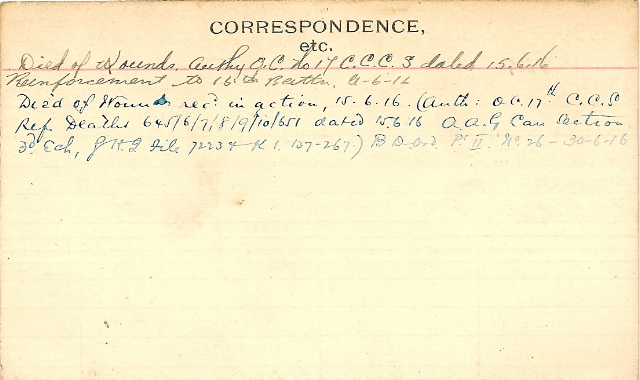 CORRESPONDENCE,
etc.
Died of Wounds. Authy O.C. No 17 C.C.S dated 15.6.16
Reinforcement to 16th Battn. 9-6-16
Died of Wounds rec'd in action, 15.6.16. (Auth: O.C. 17th C.C.S
Ref. Deaths 645/6/7/8/9/10/651 dated 15.6.16 A.A.G. Can Section
3rd Ech, G.H.Q File K1.137-267.) B.D. Ord. Pt II. No. 26 - 30-6-16